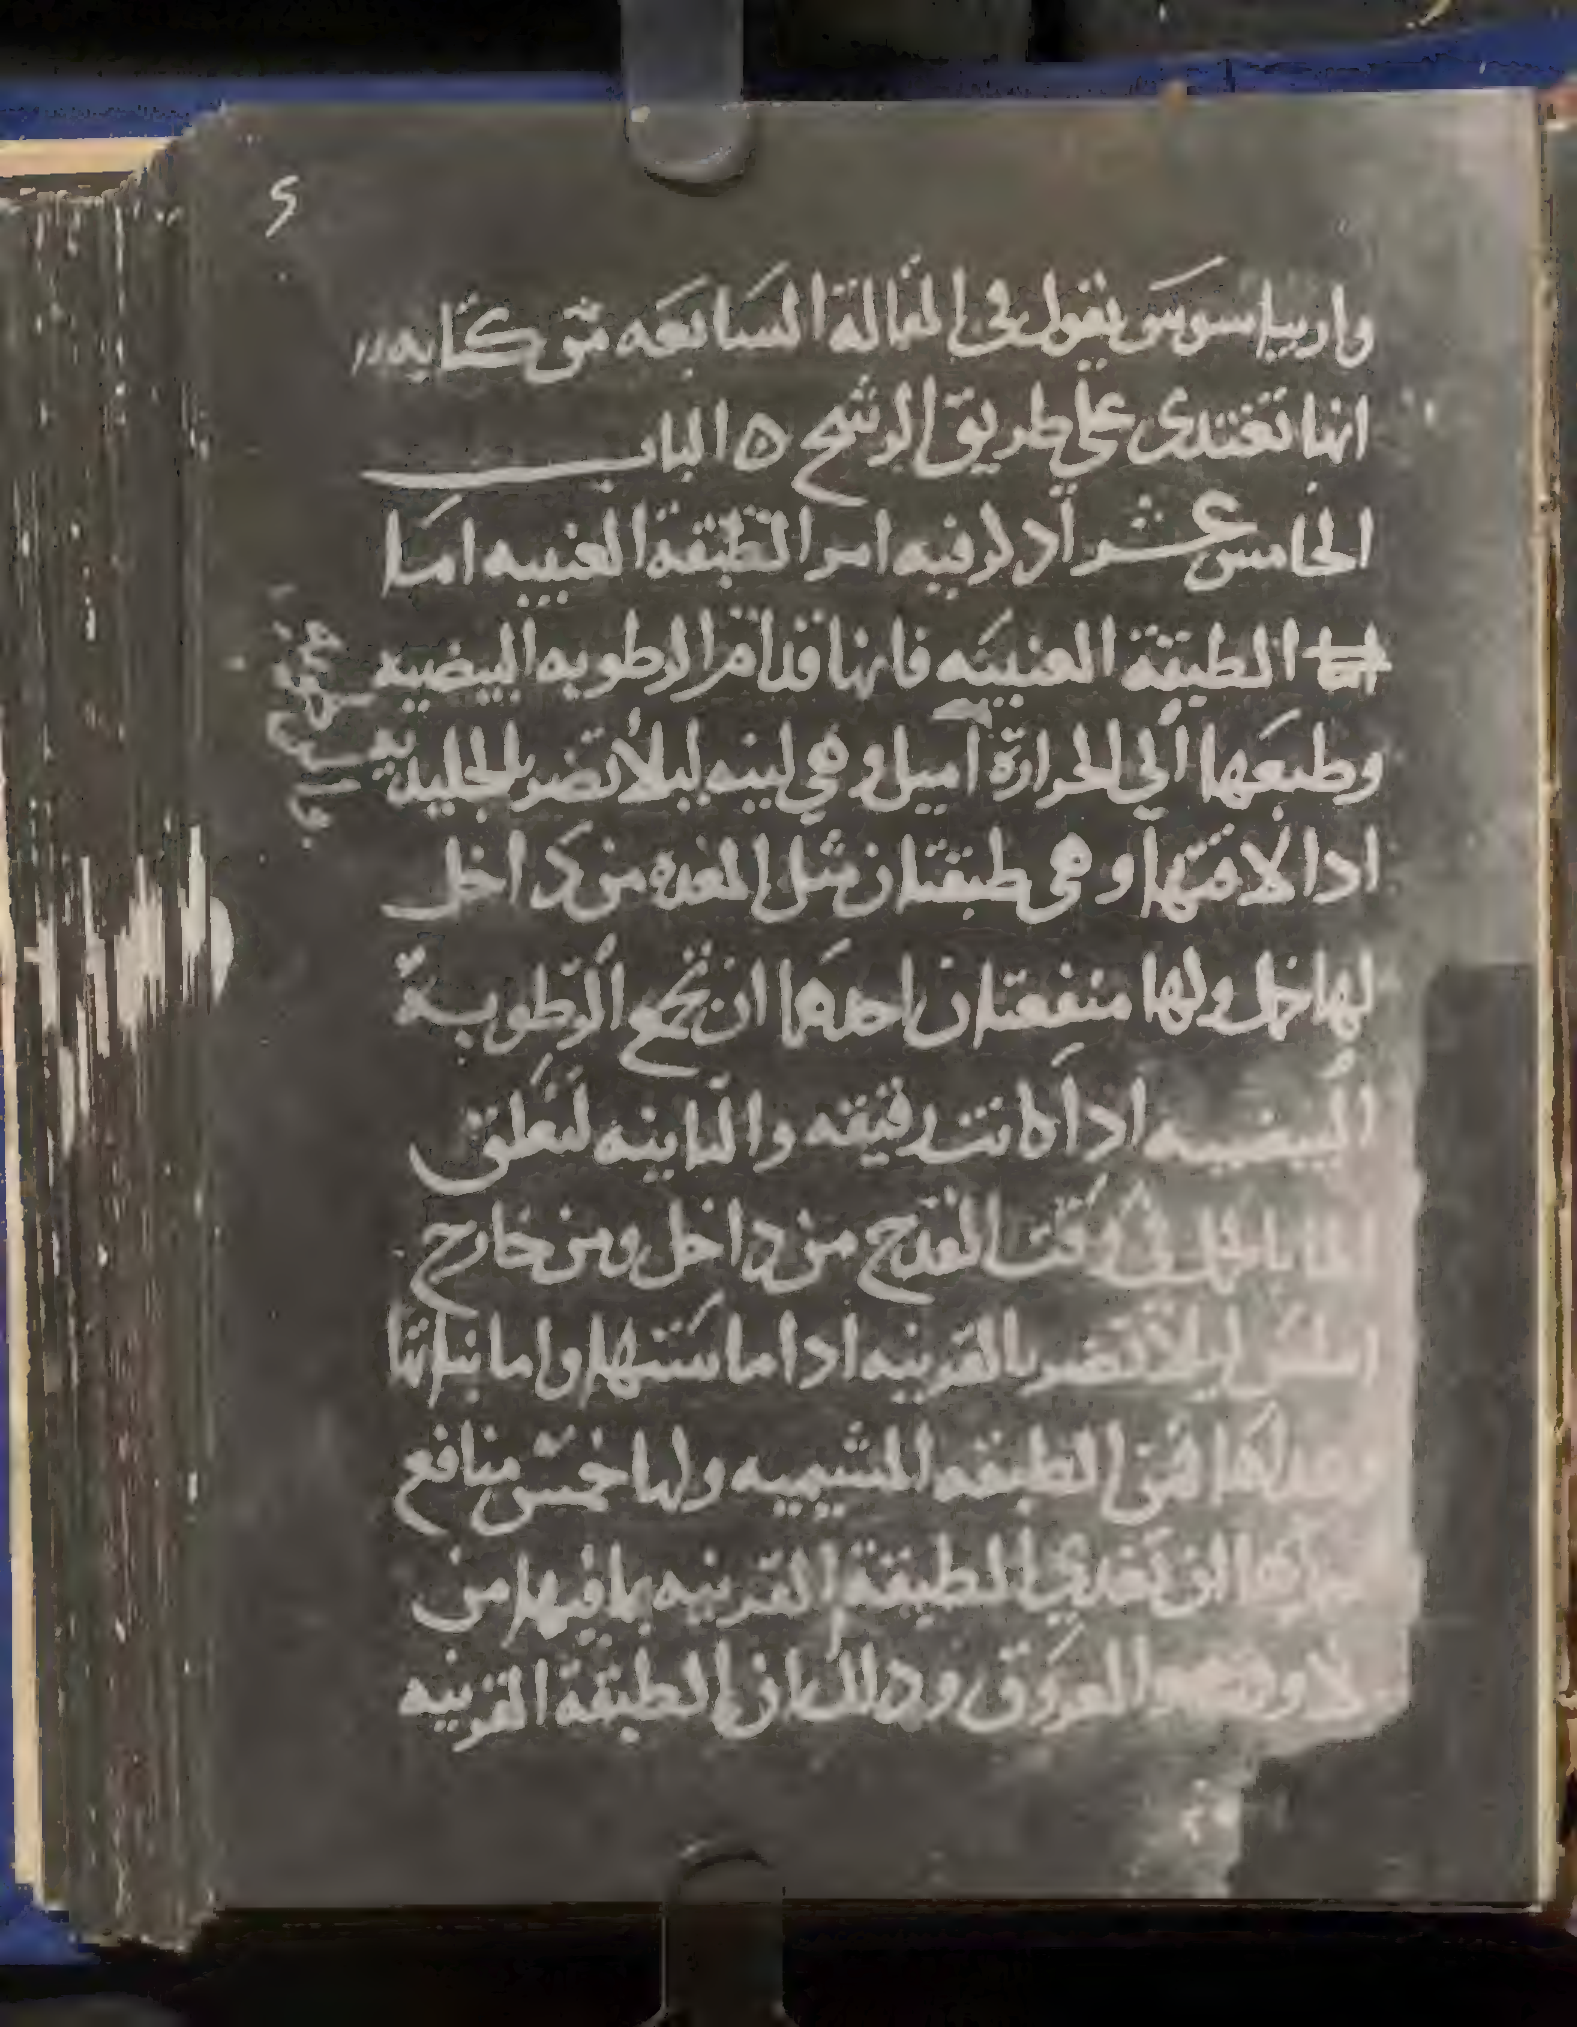 واريباسوس يقول في المقالة السابعه من كتابه
انها تغتدى على طريق الرشح ه الباب
الخامس عشر اذكر فيه امر الطبقة العنبيه اما
الطبقة العنبيه فانها قدام الرطوبه البيضيه
وطبعها الي الحرارة اميل وهي لينه ليلا تضر بالجليد
ادا لاقتها وهى طبقتان مثل المعده من داخل
لها خمل ولها منفعتان احداهما ان تجمع الرطوبة
البيضيه اذا كانت رقيقه والثانيه لتعلق
الما بالخمل في وقت القدح من داخل ومن خارج
املس ليلا تضر بالقرنيه ادا ماستها واما نباتها
من الطبقه المشيميه ولها خمس منافع
ان تغدي الطبقة القرنيه بما فيها من
العروق ودلك ان الطبقة القرنيه